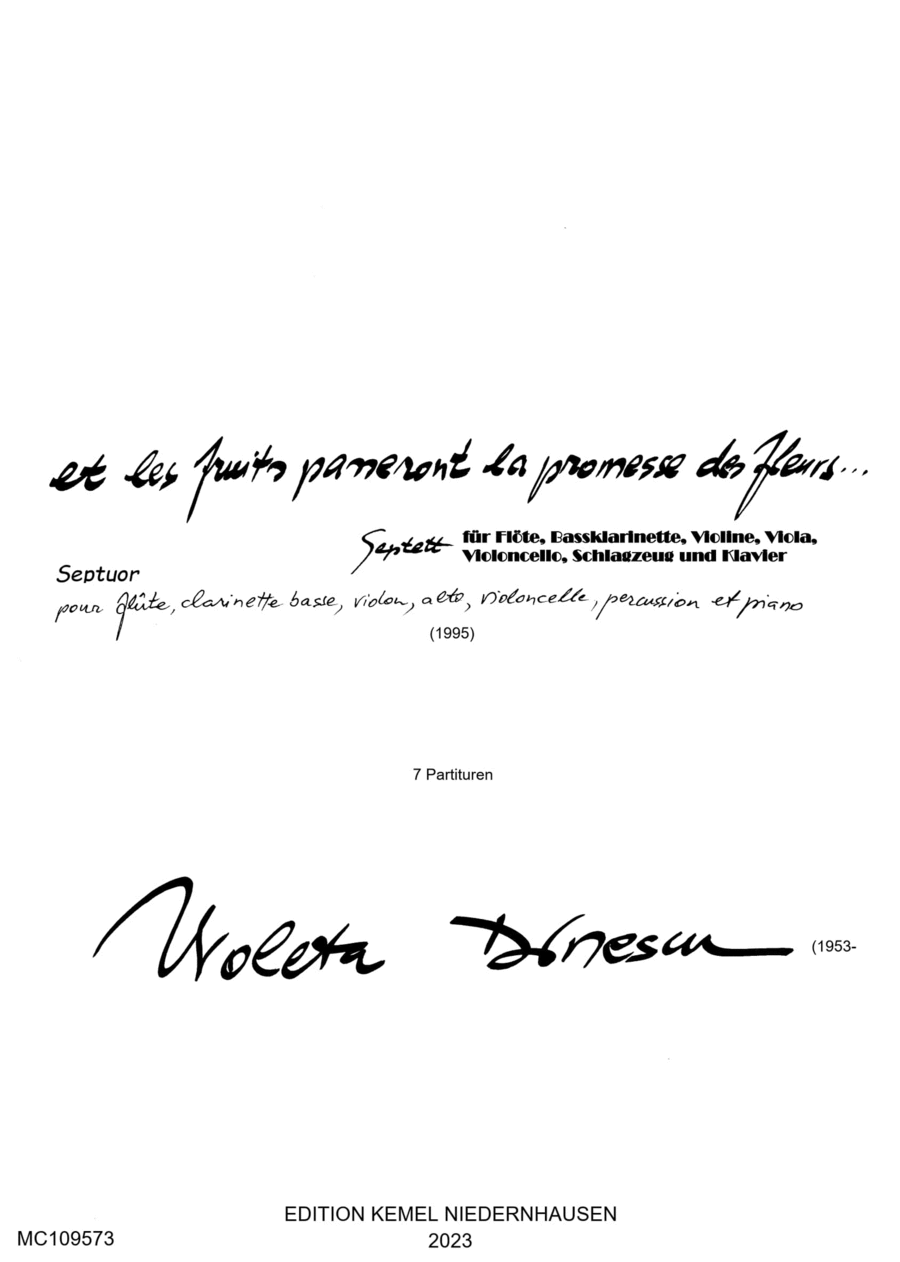 et les fruits passeront la promesse des fleurs...
Septett für Flöte, Bassklarinette, Violine, Viola,
Violoncello, Schlagzeug und Klavier
Septuor
pour flûte, clarinette basse, violon, alto, violoncelle, percussion et piano
(1995)
7 Partituren
Violeta Dinescu (1953-
EDITION KEMEL NIEDERNHAUSEN
MC109573 2023